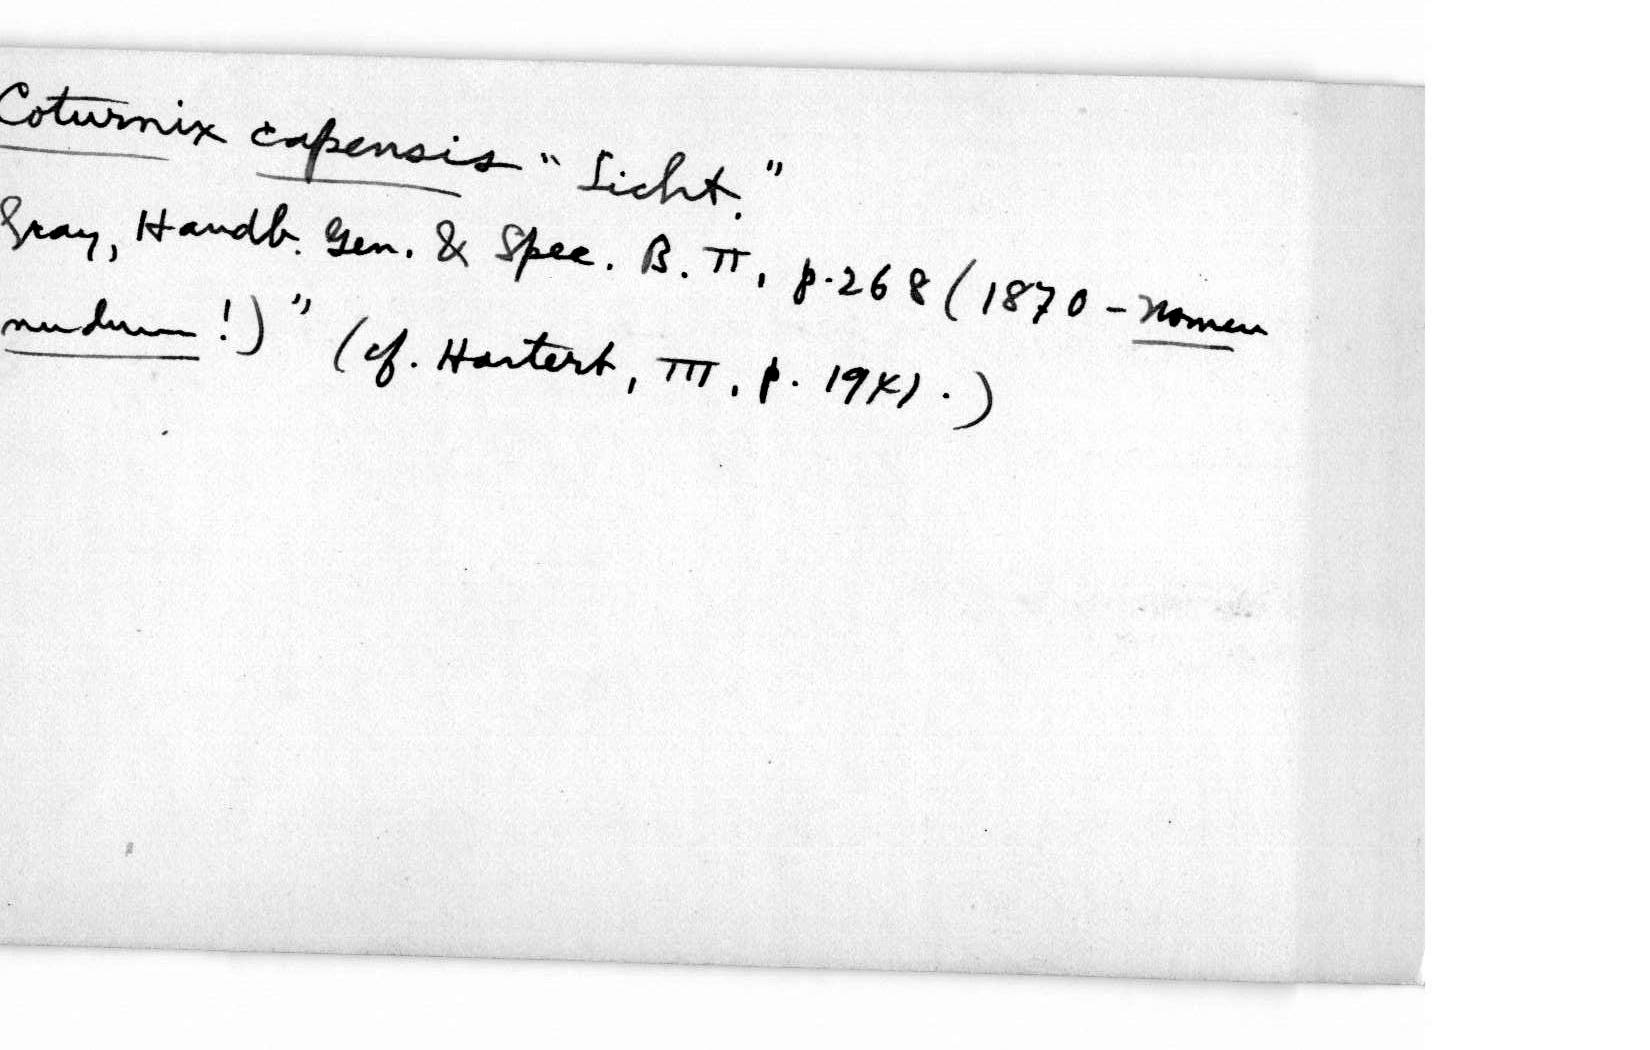 Coturnix capensis "Licht."
Gray, Handb. Gen. & Spec. B. II, p.268 (1870 - Nomen
nudum!)" (cf. Hartert, III, p.